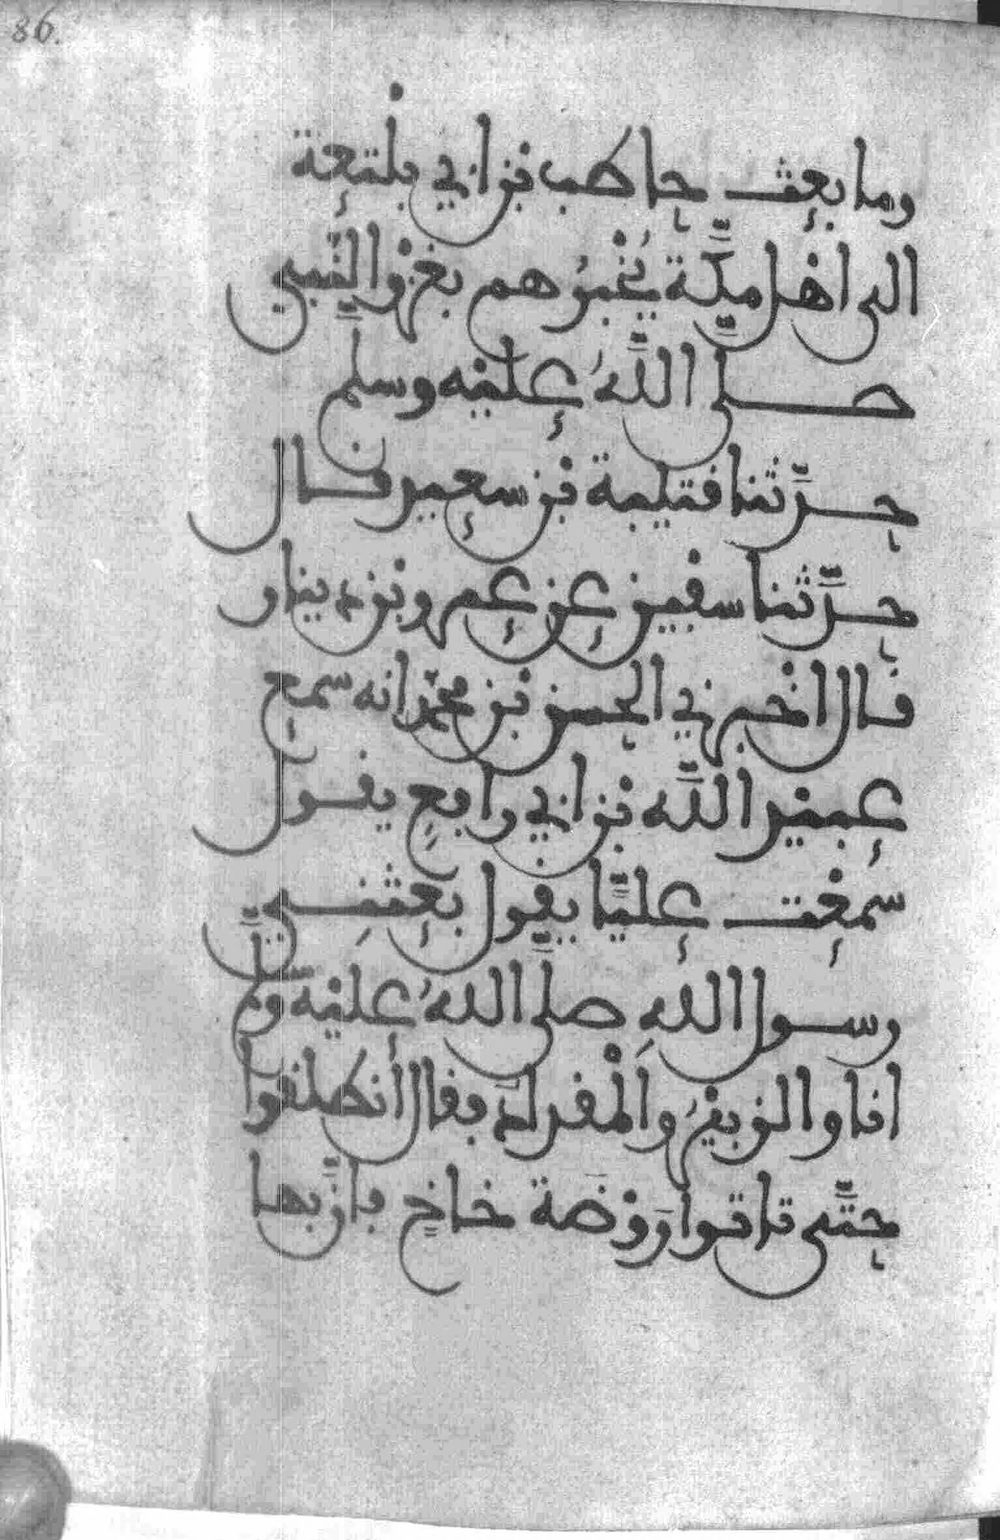 86.
وما بعث حاطب بن ابي بلتعة
الى اهل مكّة يخبرهم بغزو النّبي
صلى اللّهُ عليه وسلم
حدّثنا قتيبة بن سعيد قال
حدّثنا سفين عن عمرو بن دينار
قال اخبرني الحسن بن محمّد انه سمع
عبيد اللّه بن ابي رافع يقول
سمعت عليًّا يقول بعثني
رسول اللهِ صلّى اللهُ عليه وسلّم
انا والزبيرُ والْمقدادَ فقال انطلقوا
حتّى تاتوا روْضة خاخٍ فانّ بها